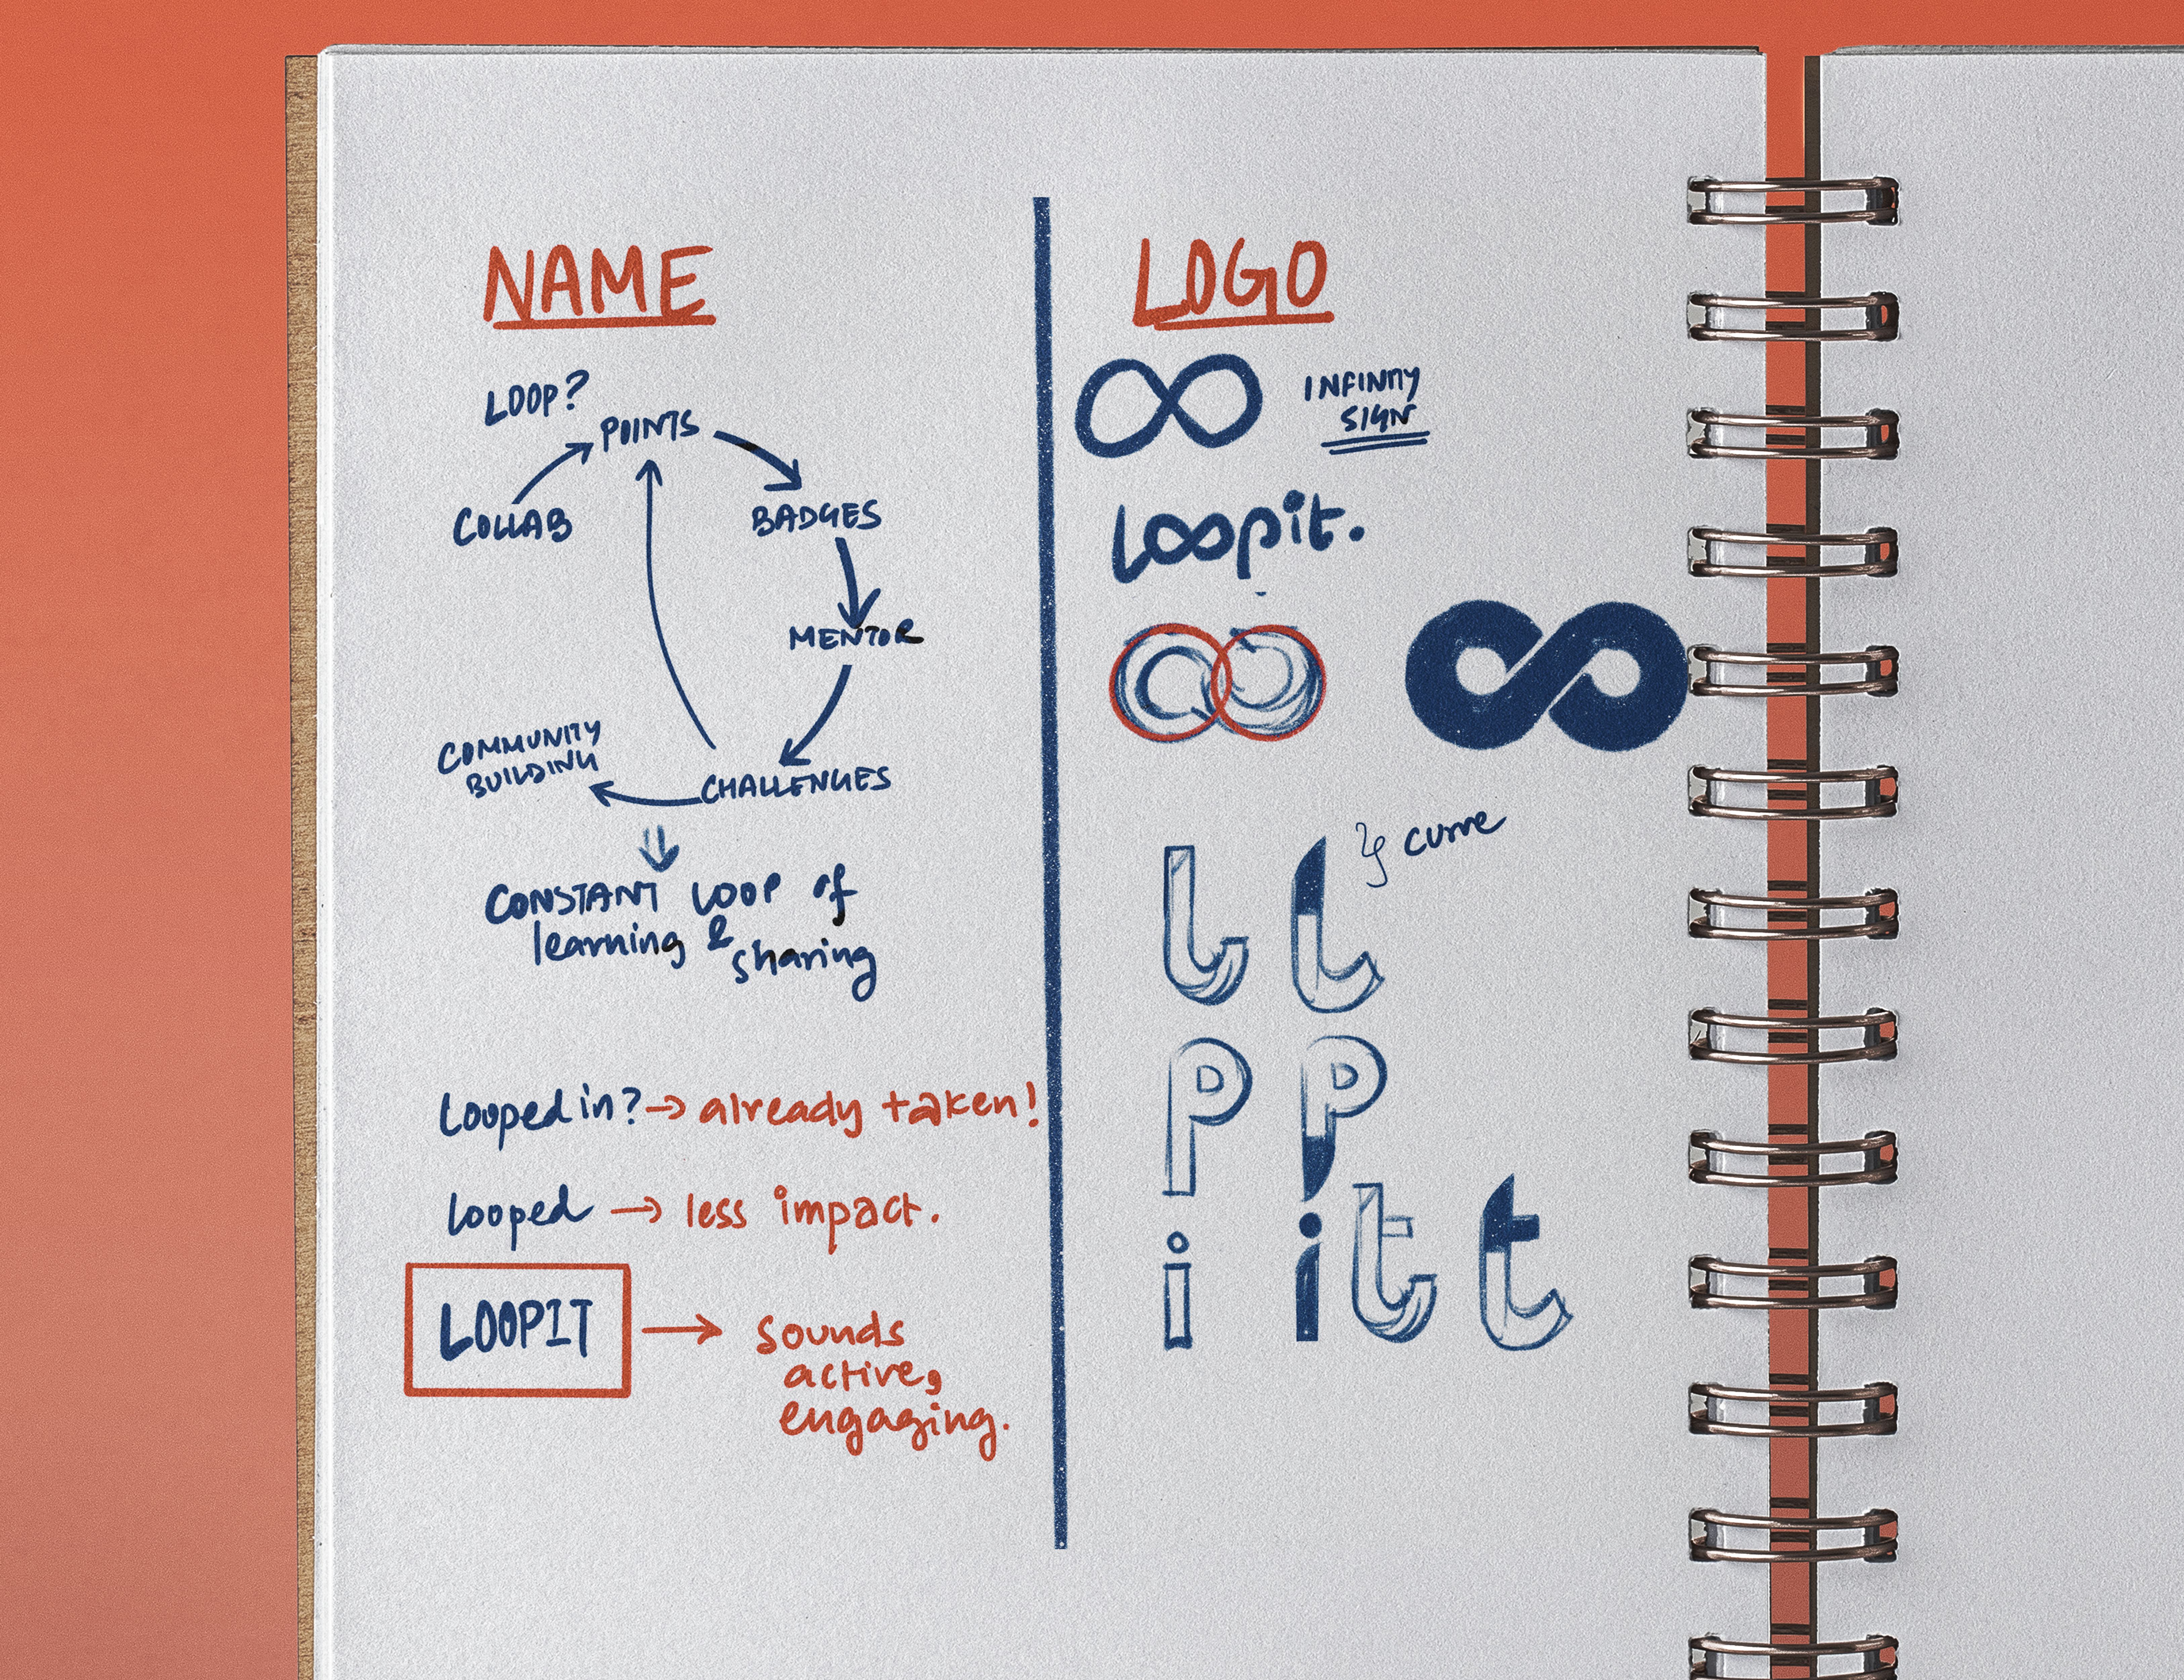 NAME
LOOP?
POINTS
COLLAB
BADGES
MENTOR
COMMUNITY
BUILDING
CHALLENGES
CONSTANT LOOP of
learning & sharing
Looped in? → already taken!
looped → less impact.
LOOPIT → sounds
active,
engaging.
LOGO
INFINITY
SIGN
loopit.
curve
l l
p p
i i t t